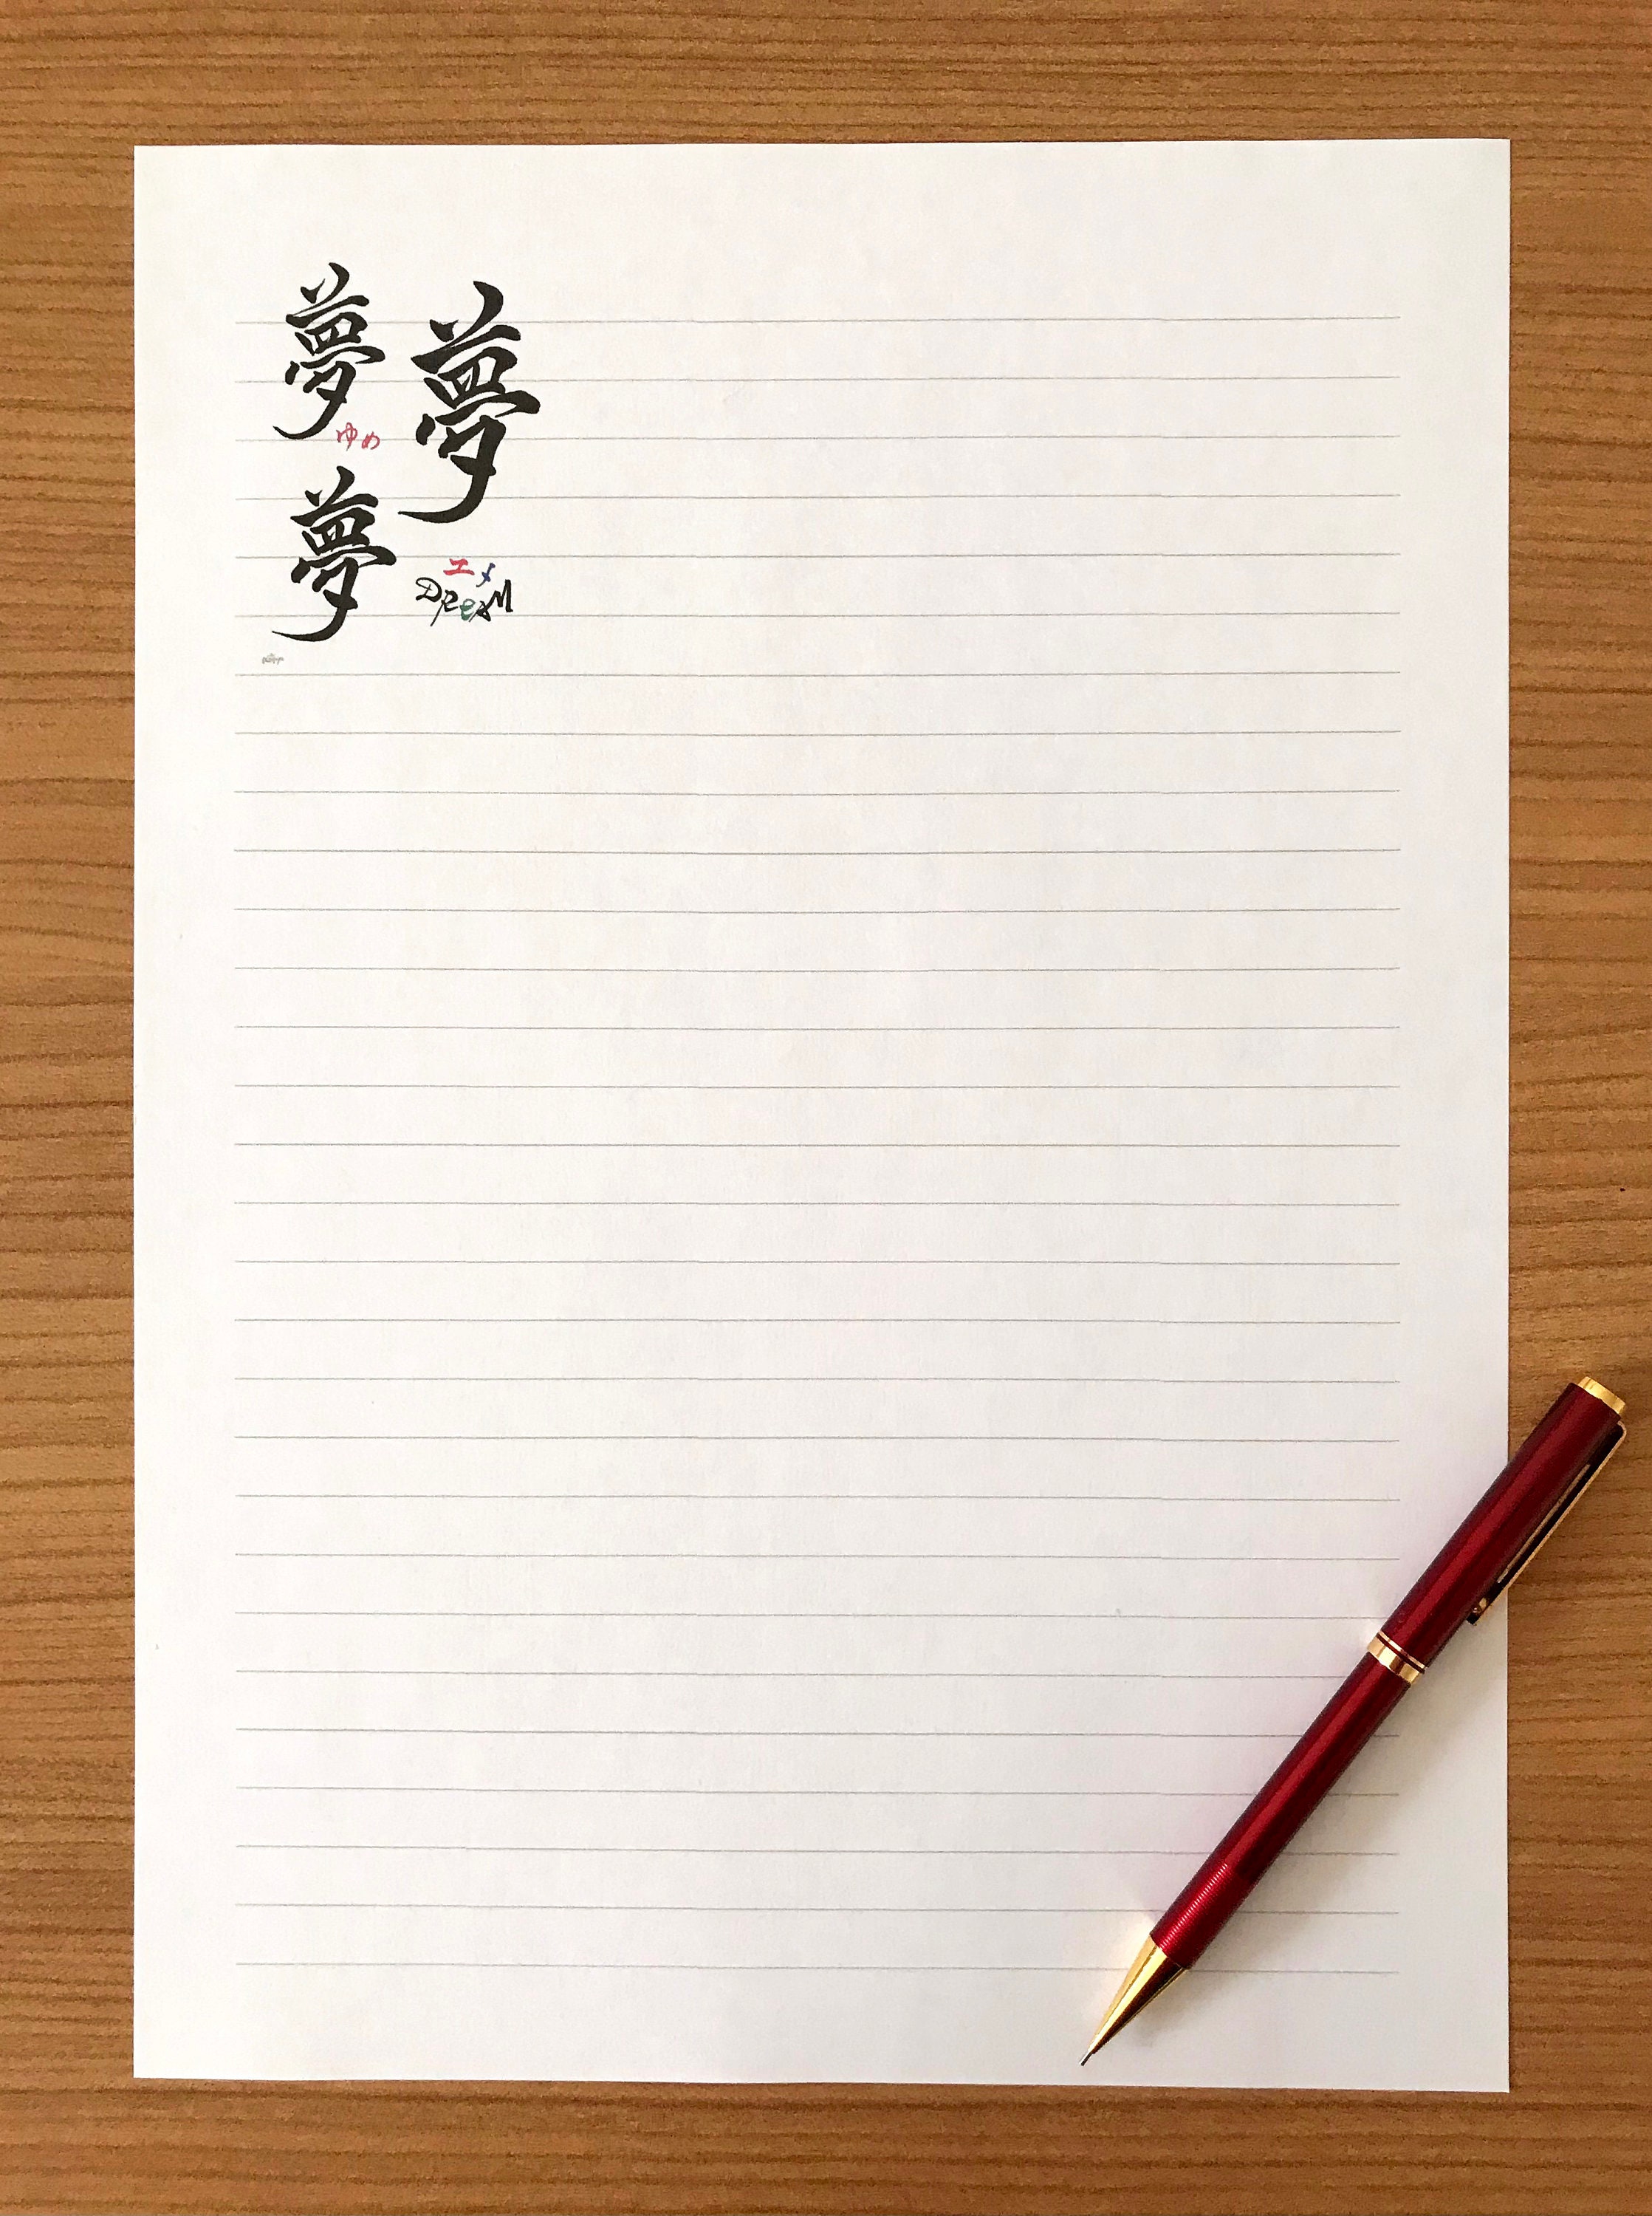 夢
夢
ゆめ
夢
エメ
DREAM